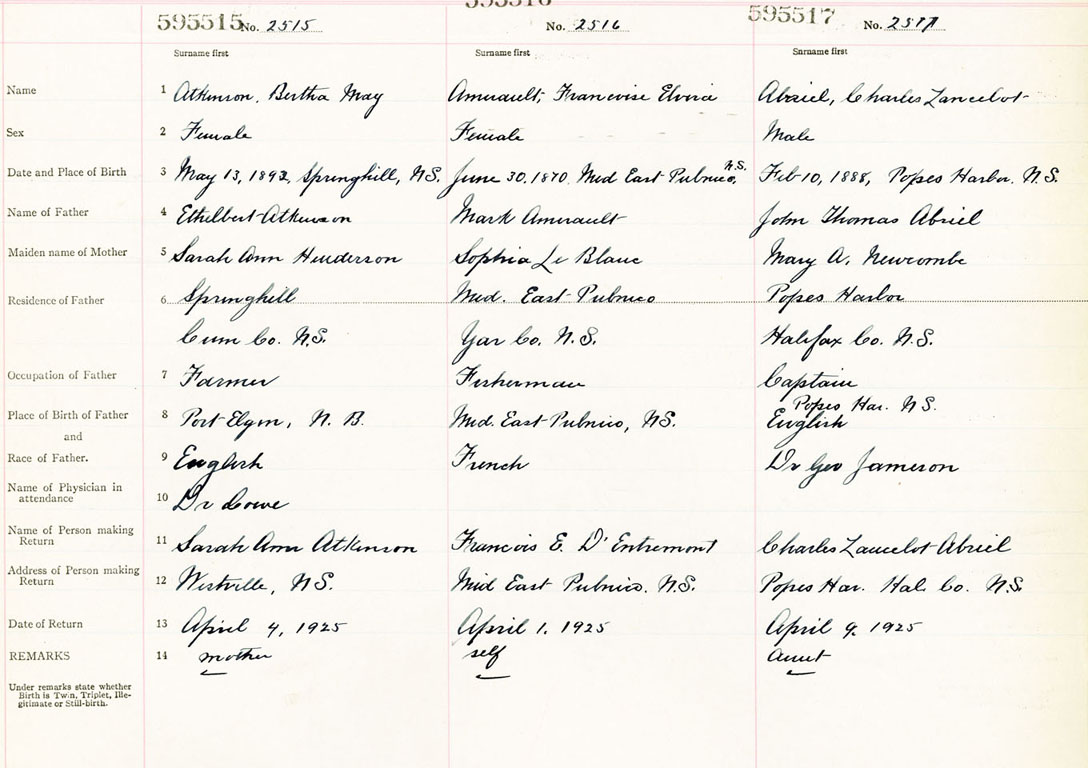 595515 No. 2515 595516 No. 2516 595517 No. 2517
Surname first Surname first Surname first
Name 1 Atkinson, Bertha May Amirault, Francoise Elvira Abriel, Charles Lancelot
Sex 2 Female Female Male
Date and Place of Birth 3 May 13, 1892, Springhill, N.S. June 30, 1870, Mid East Pubnico, N.S. Feb 10, 1888, Popes Harbor. N.S.
Name of Father 4 Ethelbert Atkinson Mark Amirault John Thomas Abriel
Maiden name of Mother 5 Sarah Ann Henderson Sophia Le Blanc Mary A. Newcombe
Residence of Father 6 Springhill Mid. East Pubnico Popes Harbor
Cum Co. N.S. Yar Co. N.S. Halifax Co. N.S.
Occupation of Father 7 Farmer Fisherman Captain
Place of Birth of Father 8 Port Elgin, N.B. Mid. East Pubnico, N.S. Popes Har. N.S.
and English
Race of Father. 9 English French Dr Geo Jameson
Name of Physician in
attendance 10 Dr Cowe
Name of Person making
Return 11 Sarah Ann Atkinson Francois E. D'Entremont Charles Lancelot Abriel
Address of Person making
Return 12 Westville, N.S. Mid East Pubnico. N.S. Popes Har. Hal. Co. N.S.
Date of Return 13 April 4, 1925 April 1, 1925 April 9, 1925
REMARKS 14 mother self aunt
Under remarks state whether
Birth is Twin, Triplet, Ille-
gitimate or Still-birth.